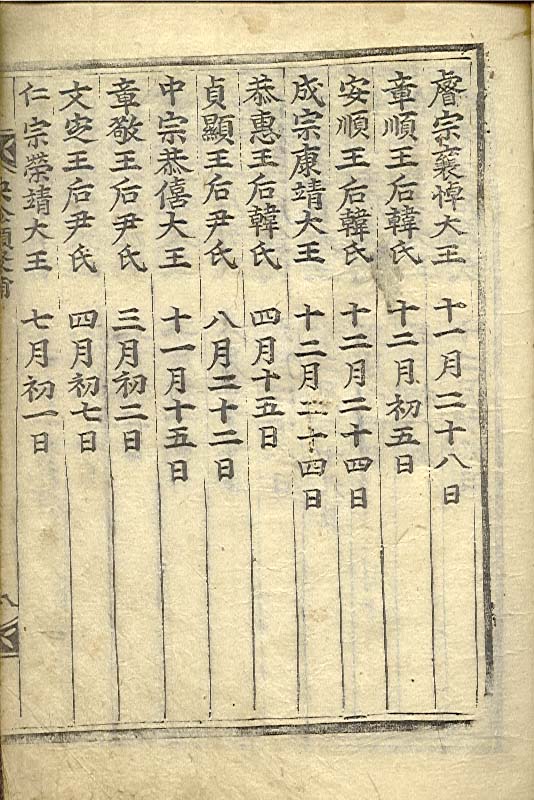 睿宗襄悼大王 十一月二十八日
章順王后韓氏 十二月初五日
安順王后韓氏 十二月二十四日
成宗康靖大王 十二月二十四日
恭惠王后韓氏 四月十五日
貞顯王后尹氏 八月二十二日
中宗恭僖大王 十一月十五日
章敬王后尹氏 三月初二日
文定王后尹氏 四月初七日
仁宗榮靖大王 七月初一日